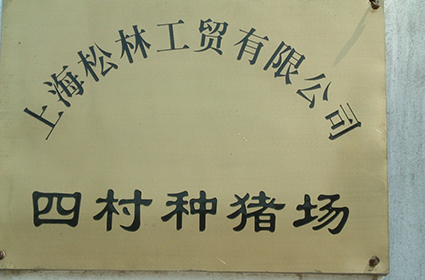 上海松林工贸有限公司
四村种猪场